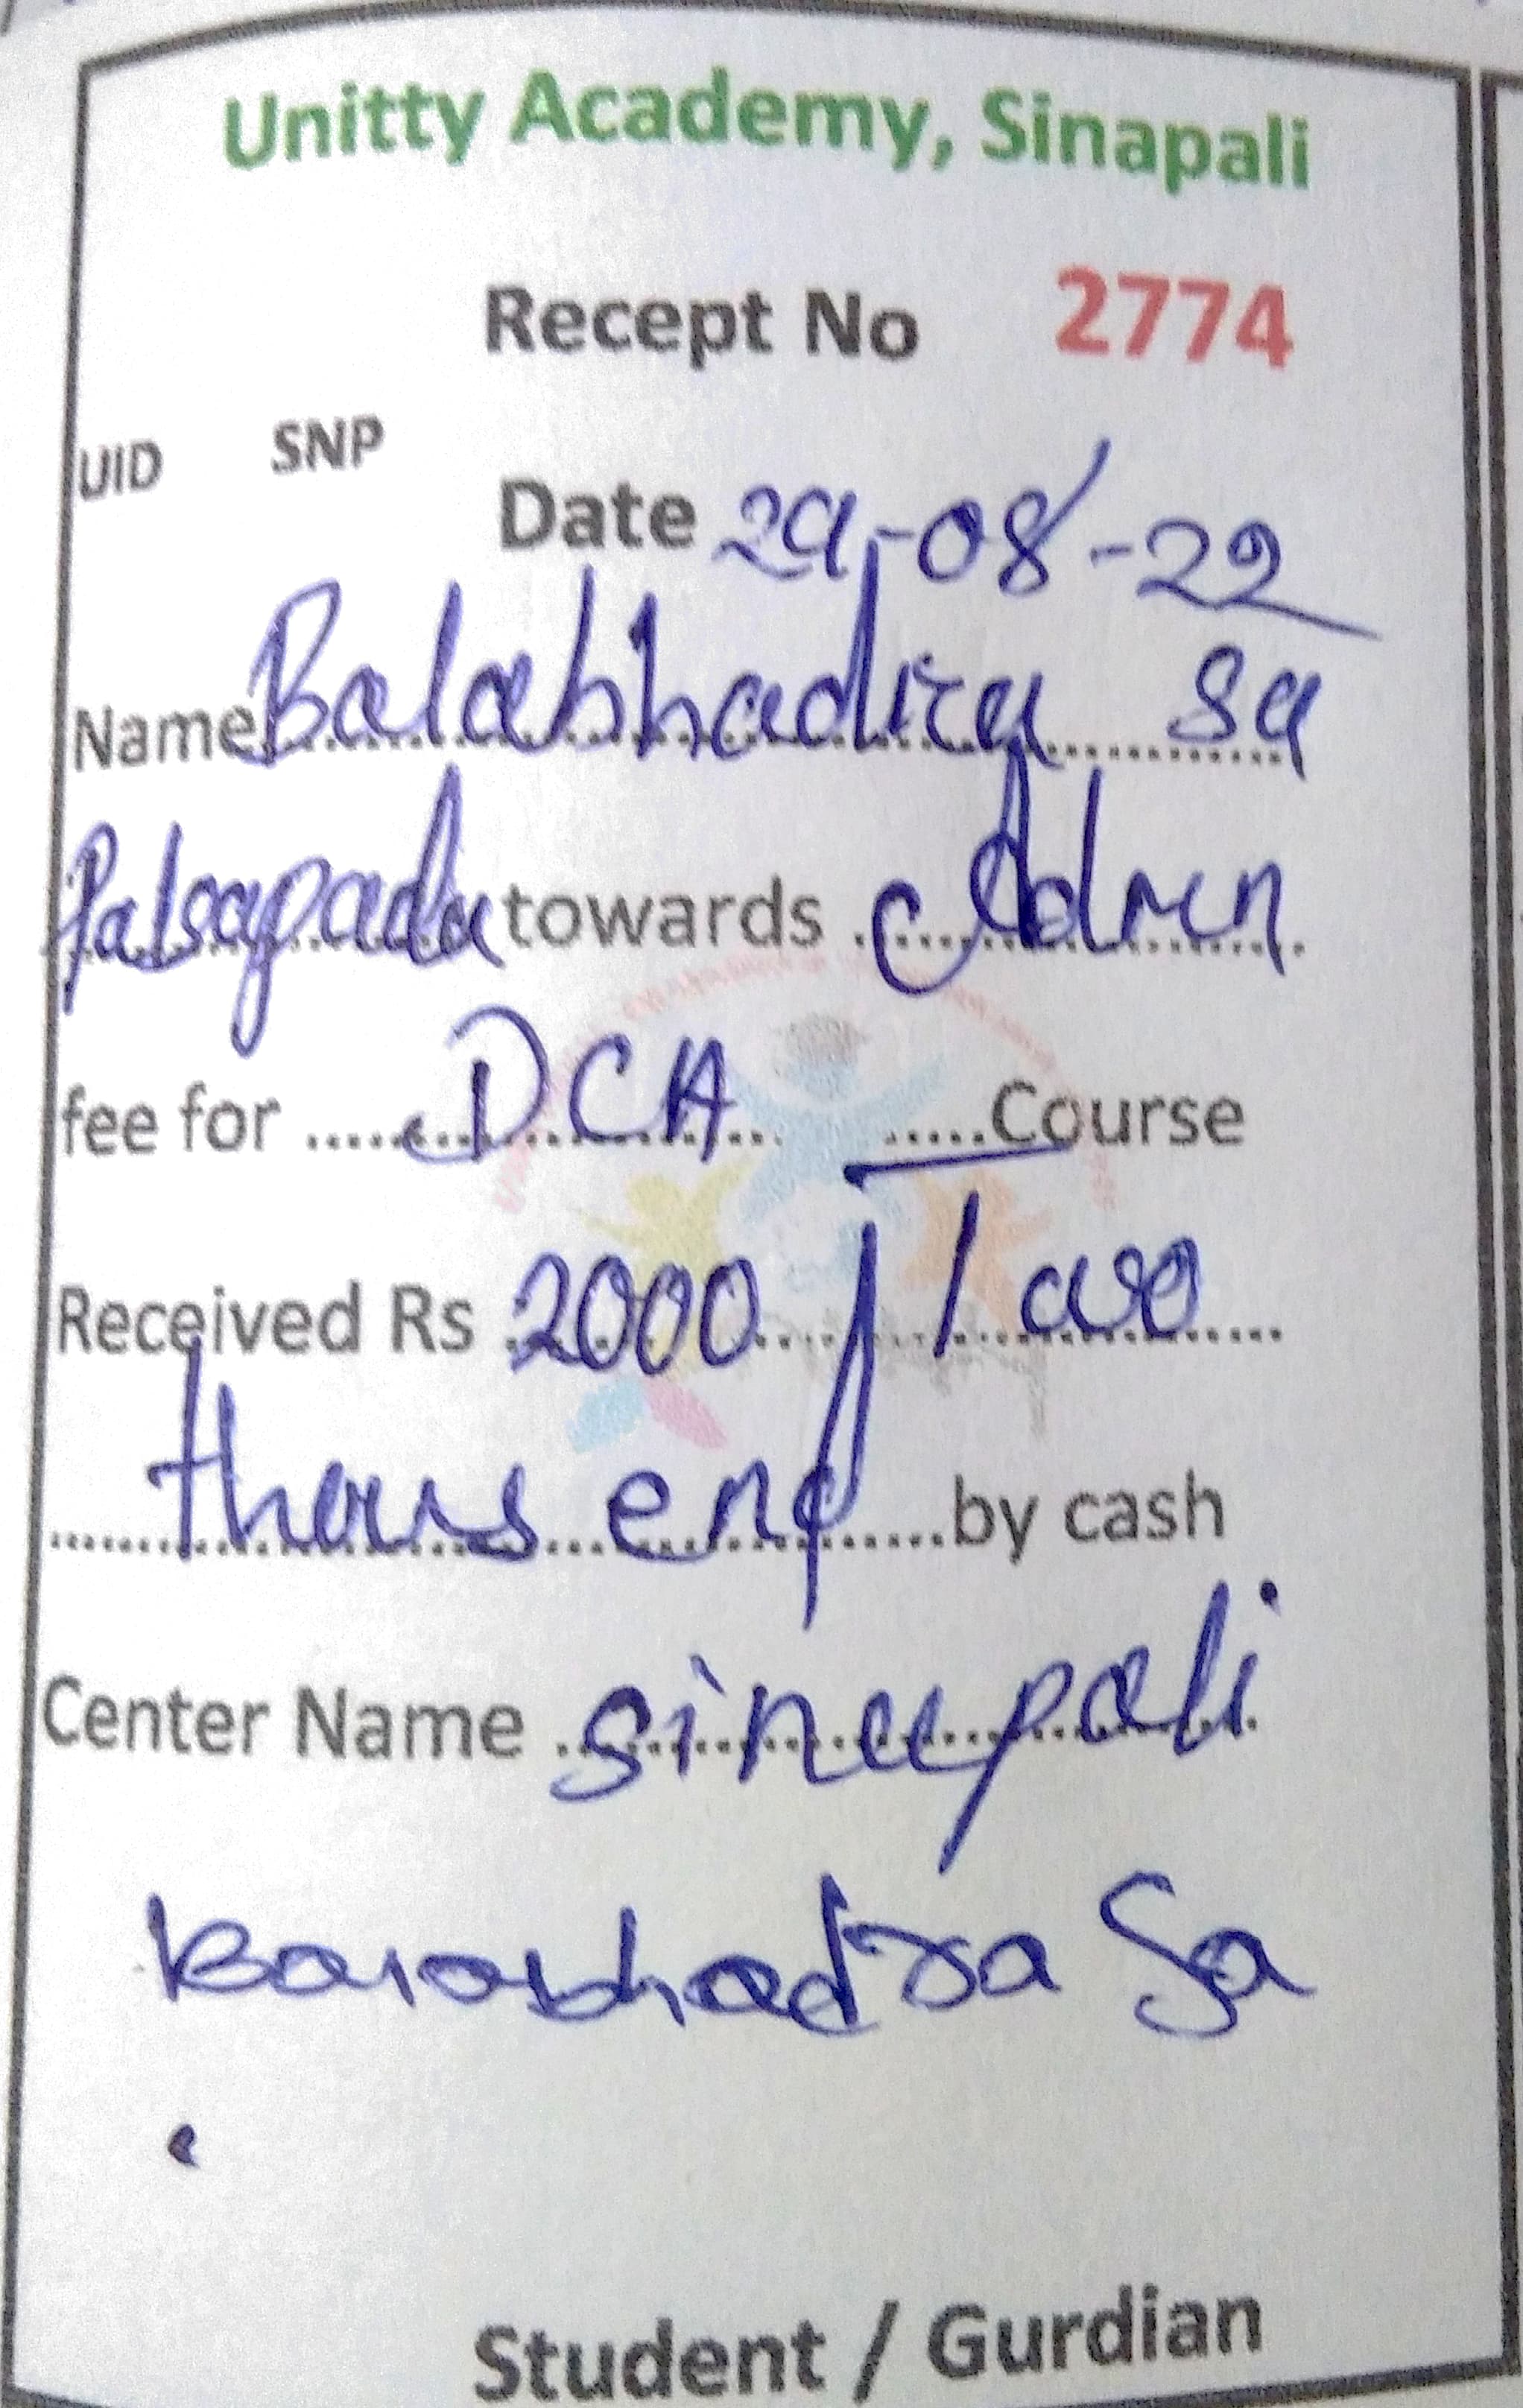 Unitty Academy, Sinapali
Recept No 2774
UID SNP
Date 29-08-22
Name Balabhadra Sa
Palsapada towards Admn
fee for ..... DCA ..... Course
Received Rs 2000 / Two
thousend by cash
Center Name Sinapali
Balabhadra Sa
Student / Gurdian